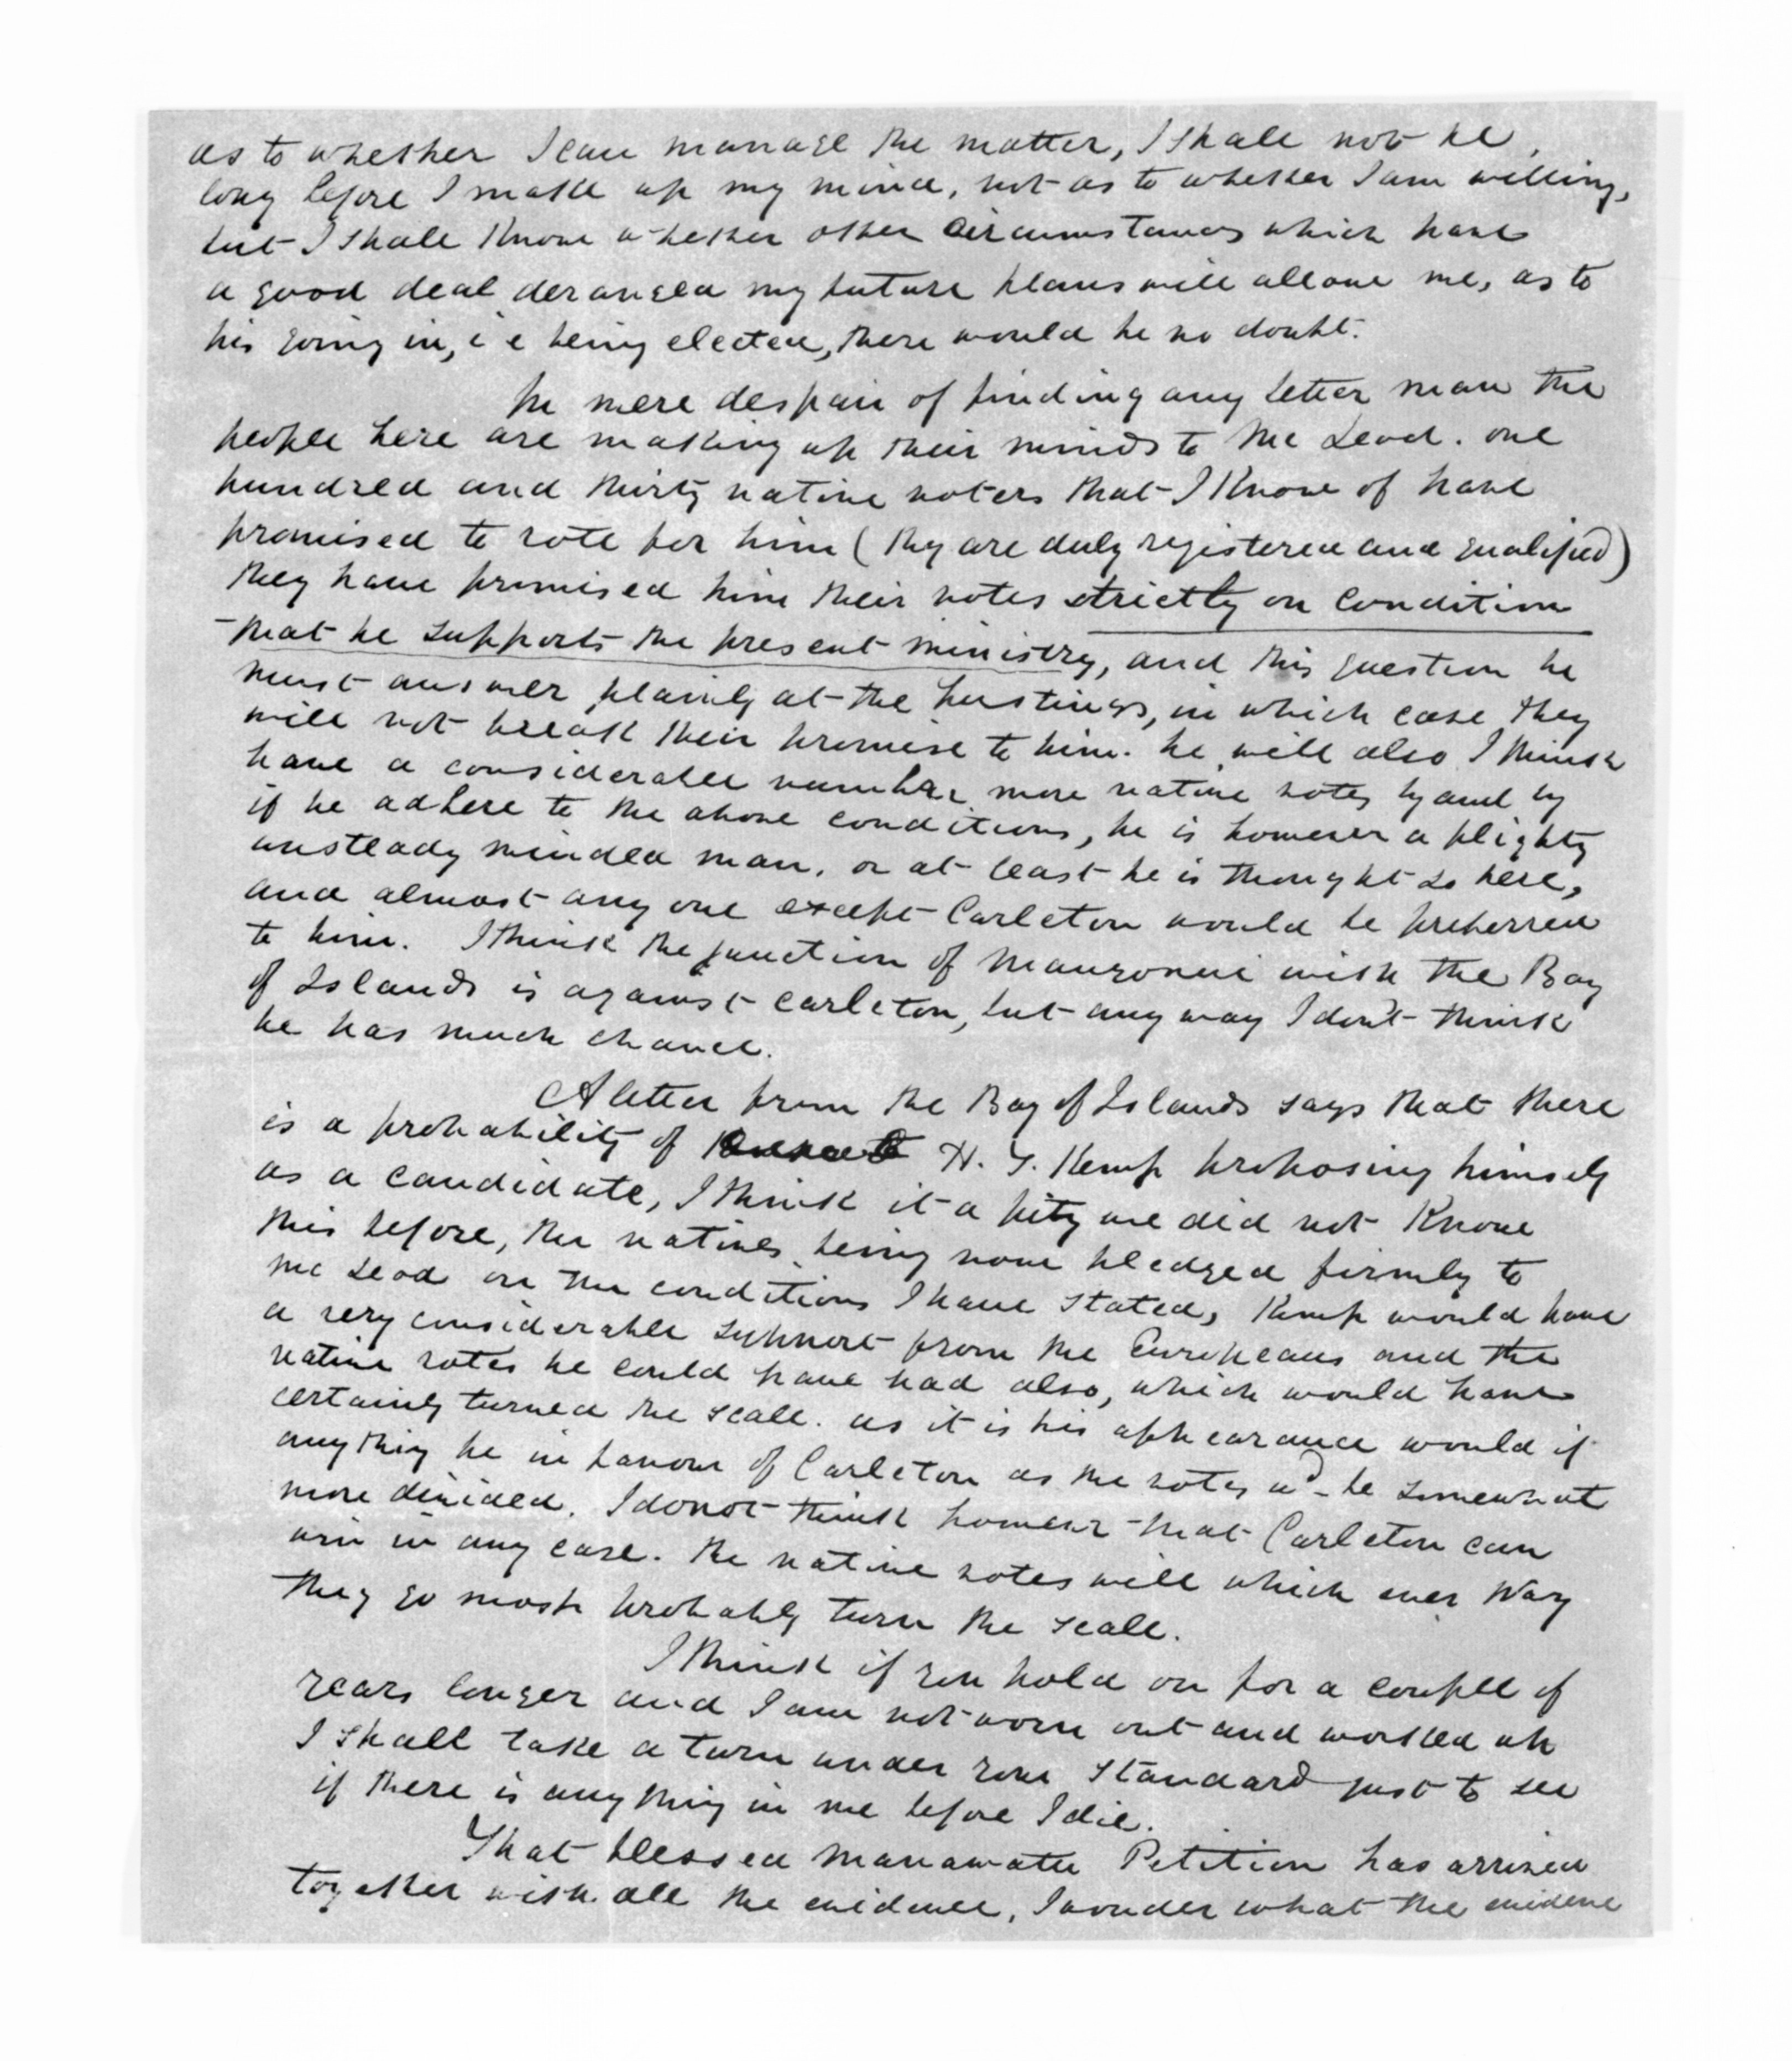 as to whether I can manage the matter, I shall not be
long before I make up my mind, not as to whether I am willing,
but I shall know whether other circumstances which have
a good deal deranged my future plans will allow me, as to
his going in, i e being elected, there would be no doubt.
In mere despair of finding any better man the
people here are making up their minds to McLeod. one
hundred and thirty native voters that I know of have
promised to vote for him (they are duly registered and qualified)
they have promised him their votes strictly on condition
that he supports the present ministry, and this question he
must answer plainly at the hustings, in which case they
will not break their promise to him. he will also I think
have a considerable number more native votes by and by
if he adhere to the above conditions, he is however a flighty
unsteady minded man, or at least he is thought so here,
and almost any one except Carleton would be preferred
to him. I think the junction of Maungonui with the Bay
of Islands is against Carleton, but any way I don't think
he has much chance.
A letter from the Bay of Islands says that there
is a probability of H. T. Kemp proposing himself
as a candidate, I think it a pity we did not know
this before, the natives being now pledged firmly to
McLeod on the conditions I have stated, Kemp would have
a very considerable support from the Europeans and the
native votes he could have had also, which would have
certainly turned the scale. as it is his appearance would if
anything be in favour of Carleton as the votes wd be somewhat
more divided. I do not think however that Carleton can
win in any case. The native votes will which ever way
they go most probably turn the scale.
I think if you hold on for a couple of
years longer and I am not worn out and worked up
I shall take a turn under your standard just to see
if there is anything in me before I die.
That blessed Manawatu Petition has arrived
together with all the evidence, I wonder what the evidence